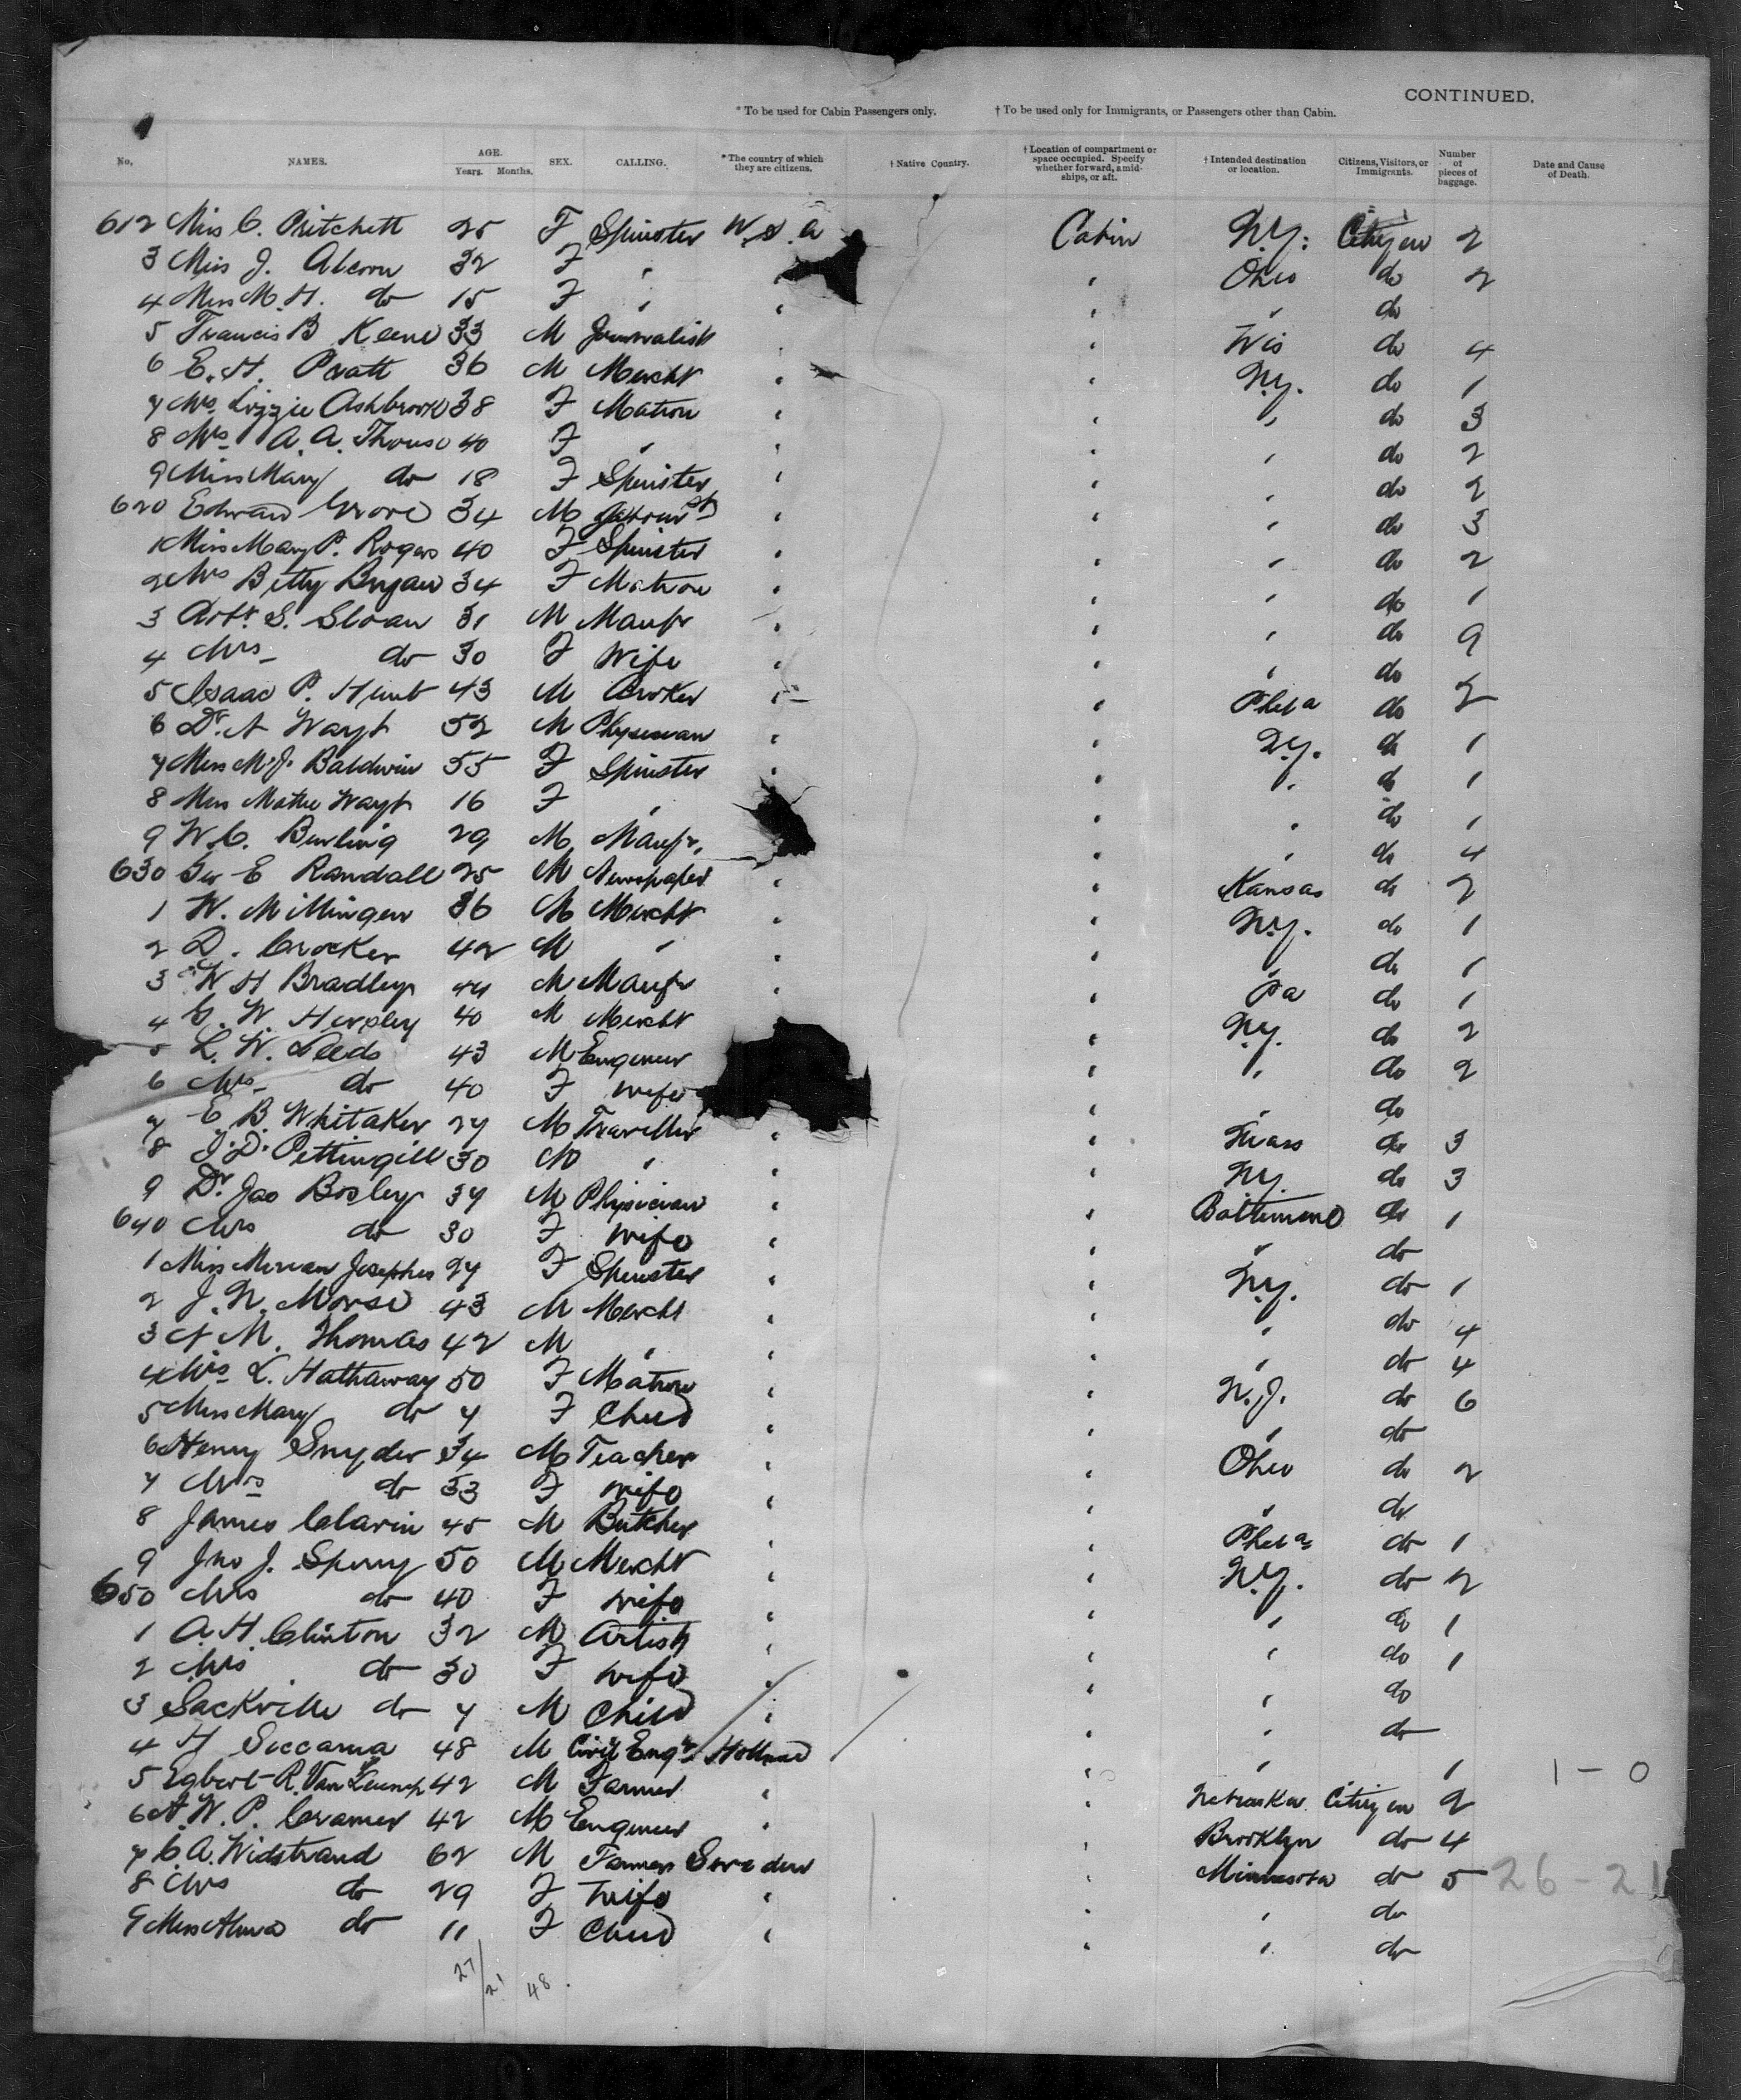 CONTINUED.
* To be used for Cabin Passengers only. † To be used only for Immigrants, or Passengers other than Cabin.
No. NAMES. AGE. Years. Months. SEX. CALLING. * The country of which they are citizens. † Native Country. † Location of compartment or space occupied. Specify whether forward, amidships, or aft. † Intended destination or location. Citizens, Visitors, or Immigrants. Number of pieces of baggage. Date and Cause of Death.
612 Miss C. Pritchett 25 F Spinster U.S.A Cabin N.Y. Citizen 2
3 Miss J. 32 F " " Ohio do 2
4 Miss M. H. do 15 F " " " " do
5 Francis B Keene 33 M Journalist " " Wis do 4
6 E. H. Pratt 36 M Mercht " " N.Y. do 1
7 Mrs Lizzie Ashbrook 38 F Matron " " " do 3
8 Mrs A. A. 40 F " " " " do 2
9 Miss Mary do 18 F Spinster " " " do 2
620 Edward Grove 34 M " " " do 3
1 Miss Mary P. Rogers 40 F Spinster " " " do 2
2 Mrs Betty Bryan 34 F Matron " " " do 1
3 Arthr S. Sloan 31 M Manfr " " " do 9
4 Mrs do 30 F Wife " " " do
5 Isaac P. Hunt 43 M Broker " " Phila do 2
6 Dr. A Wayt 52 M Physician " " N.Y. do 1
7 Miss M. J. Baldwin 55 F Spinster " " " do 1
8 Miss Mattie Wayt 16 F " " " do 1
9 W. C. Burling 29 M Manfr. " " do 4
630 Geo E Randall 25 M Newspaper " " Kansas do 2
1 W. Millingen 36 M Mercht " " N.Y. do 1
2 D. Crocker 42 M " " " " do 1
3 W H Bradley 44 M Manfr " " Pa do 1
4 G. W. 40 M Mercht " N.Y. do 2
5 L. W. Leeds 43 M Engineer " " do 2
6 Mrs do 40 F Wife " " do
7 E. B. Whitaker 27 M Traveller " " Mass do 3
8 J. D. Pettingill 30 M " " " N.Y. do 3
9 Dr. Jas Bosley 37 M Physician " " Baltimore do 1
640 Mrs do 30 F Wife " " " do
1 Miss Miriam Josephes 27 F Spinster " " N.Y. do 1
2 J. N. Morse 43 M Mercht " " " do 4
3 A M. Thomas 42 M " " " " do 4
4 Mrs L. Hathaway 50 F Matron " " N.J. do 6
5 Miss Mary do 7 F Child " " " do
6 Henry Snyder 34 M Teacher " " Ohio do 2
7 Mrs do 33 F Wife " " " do
8 James Clavin 45 M Butcher " " Phila do 1
9 Jno J. Sperry 50 M Mercht " " N.Y. do 2
650 Mrs do 40 F Wife " " " do 1
1 A. H. Clinton 32 M Artist " " " do 1
2 Mrs do 30 F Wife " " " do
3 Sackville do 7 M Child " " " do
4 H Seccama 48 M Civil Engr Holland " " 1 1 – 0
5 Egbert R. Van 42 M Farmer " " Nebraska Citizen 2
6 A. W. P. Cramer 42 M Engineer " " Brooklyn do 4
7 C. A. Widstrand 62 M Farmer Sweden Minnesota do 5 26 – 21
8 Mrs do 29 F Wife " " " do
9 Miss Alma do 11 F Child " " " do
27/21 48.